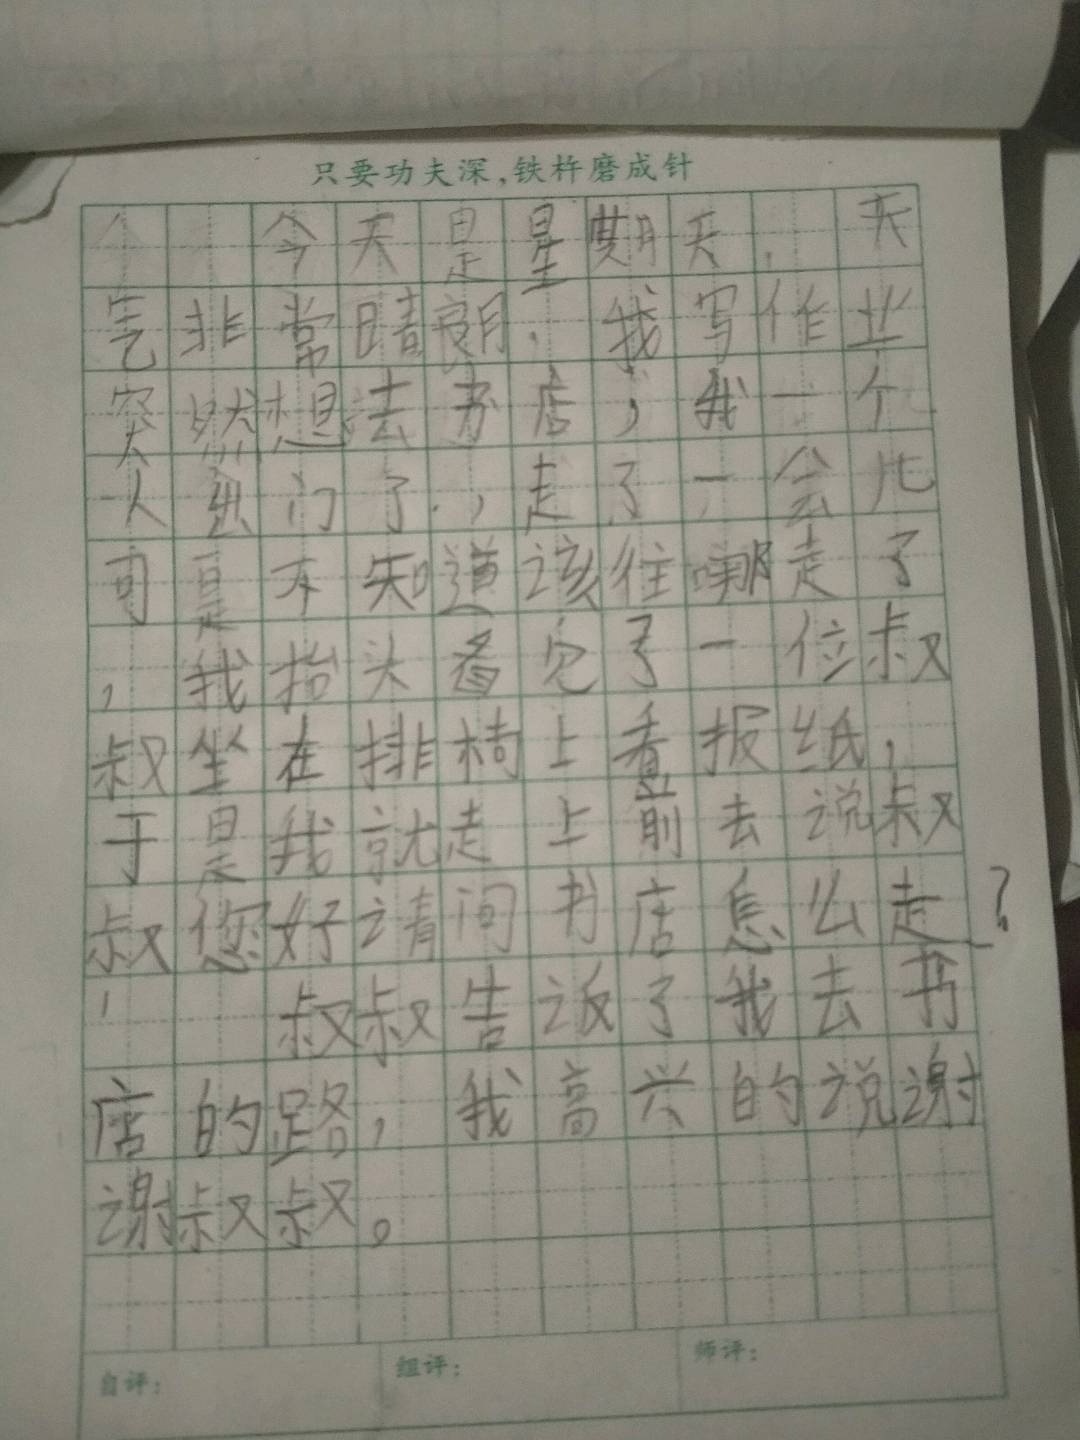 只要功夫深，铁杵磨成针
今天是星期天，天
气非常晴朗，我写作业
突然想去书店，我一个
人出门了，走了一会儿
可是不知道该往哪走了
，我抬头看见了一位叔
叔坐在排椅上看报纸，
于是我就走上前去说叔
叔您好请问书店怎么走？
叔叔告诉了我去书
店的路，我高兴的说谢
谢叔叔。
自评： 组评： 师评：